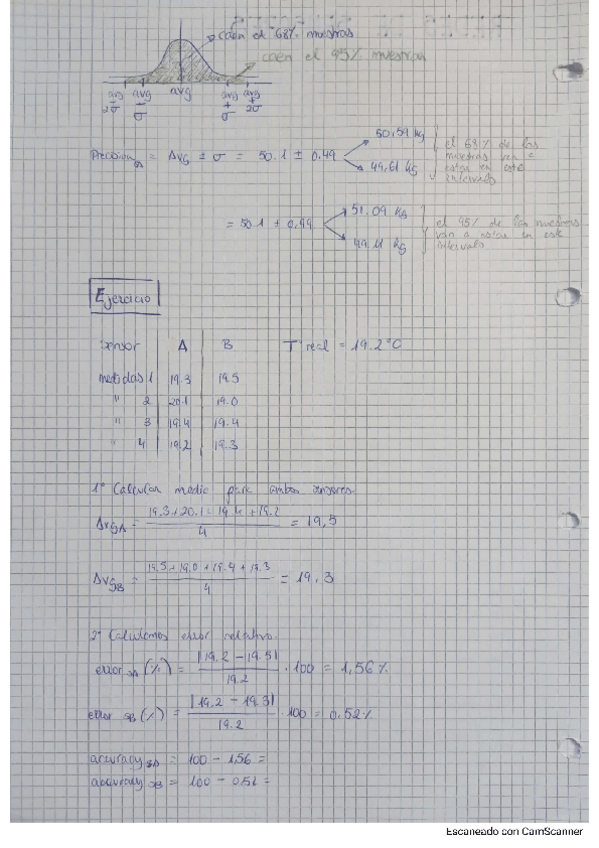 caen el 68% muestras
caen el 95% muestran
avg - 2σ avg - σ avg avg + σ avg + 2σ
50.59 kg
Precision = Avg ± σ = 50.1 ± 0.49
49.61 kg
el 68% de las
muestras van a
estar en este
intervalo
51.09 kg
= 50.1 ±
el 95% de las muestras
van a estar en este
intervalo
Ejercicio
Sensor A B Tª real = 19.2°C
medidas 1 19.3 19.5
" 2 20.1 19.0
" 3 19.4 19.4
" 4 19.2 19.3
1º Calcular media para ambos sensores
AvgA = 19.3 + 20.1 + 19.4 + 19.2 / 4 = 19,5
AvgB = 19.5 + 19.0 + 19.4 + 19.3 / 4 = 19.3
2º Calculamos error relativo
error SA (%) = |19.2 - 19.5| / 19.2 · 100 = 1,56%
error SB (%) = |19.2 - 19.3| / 19.2 · 100 = 0.52%
accuracy SA = 100 - 1,56 =
accuracy SB = 100 - 0.52 =
Escaneado con CamScanner